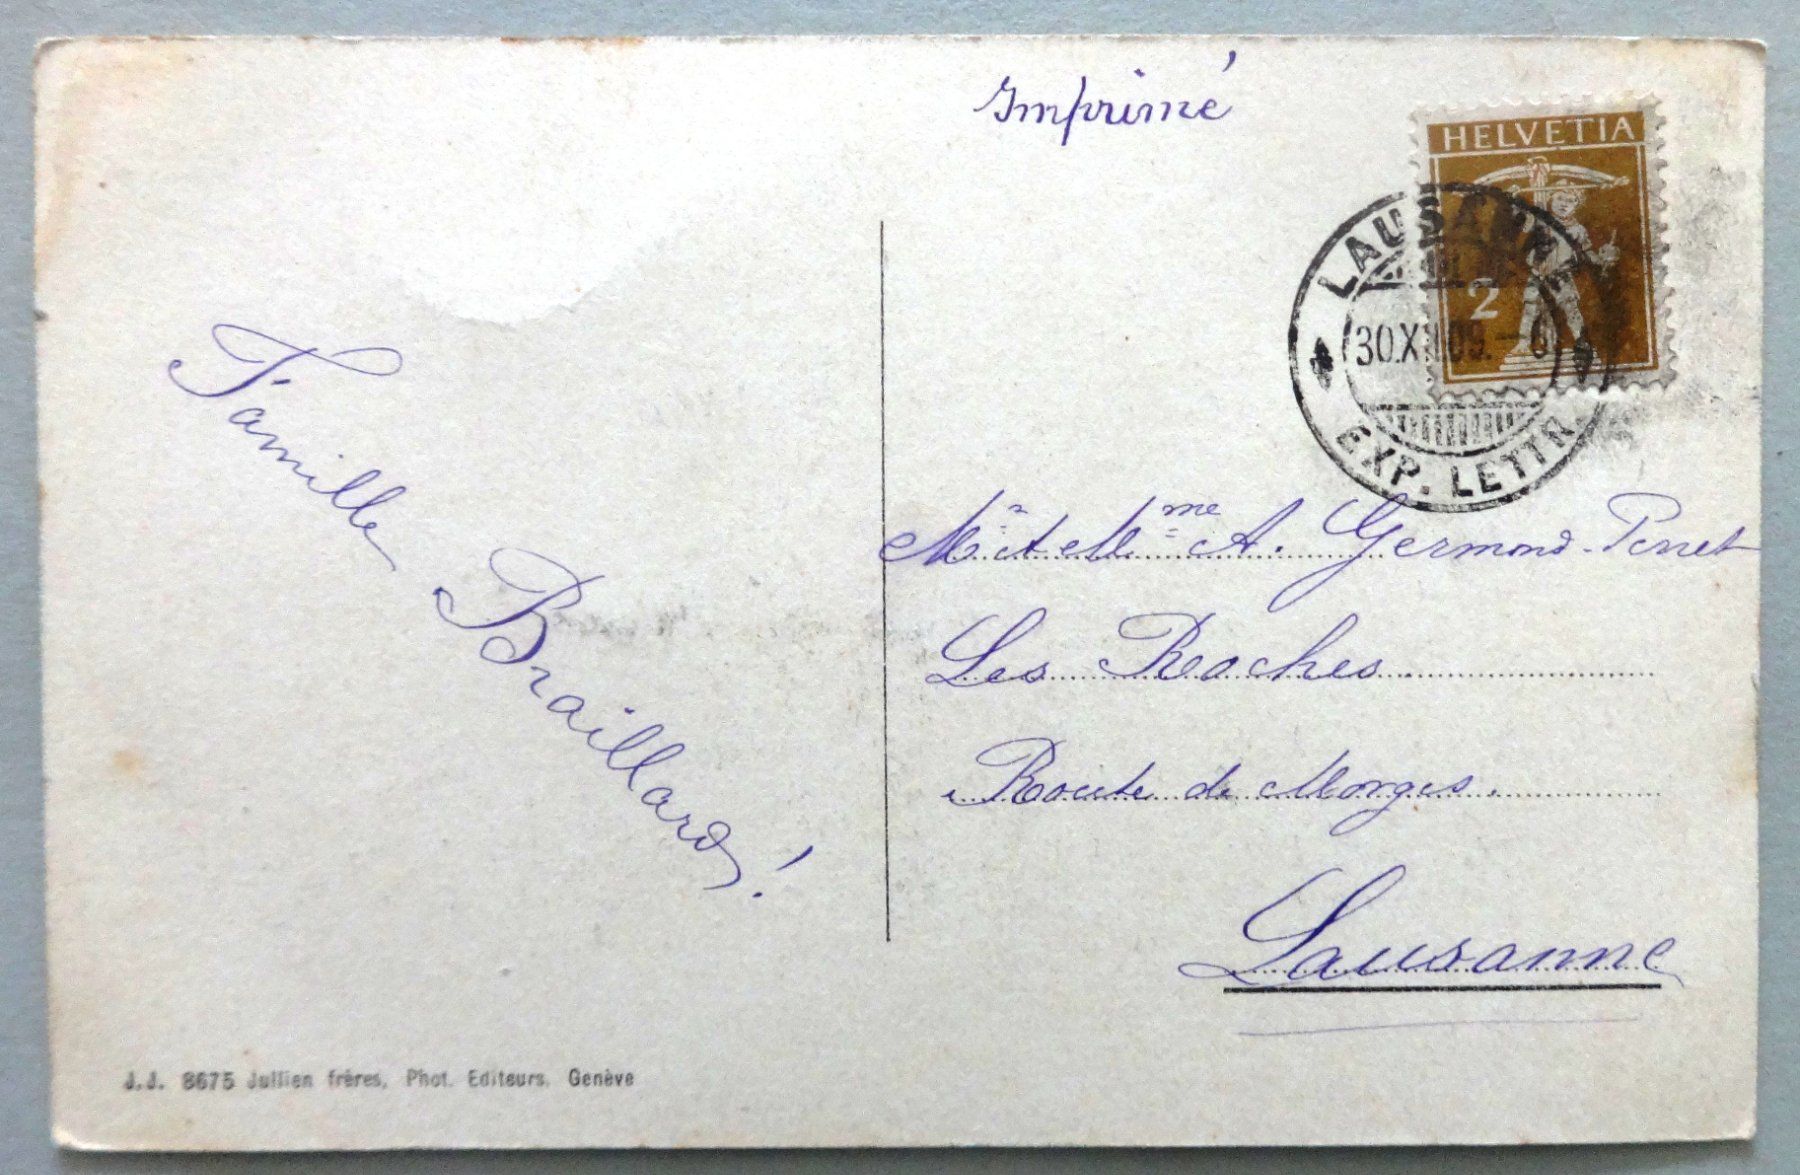 Imprimé
HELVETIA
2
LAUSANNE
30.XII.09.-6
EXP. LETTR.
Famille
Braillard!
Mr et Mme A. Germond-Perret
Les Roches.
Route de Morges.
Lausanne
J.J. 8675 Jullien frères, Phot. Editeurs, Genève